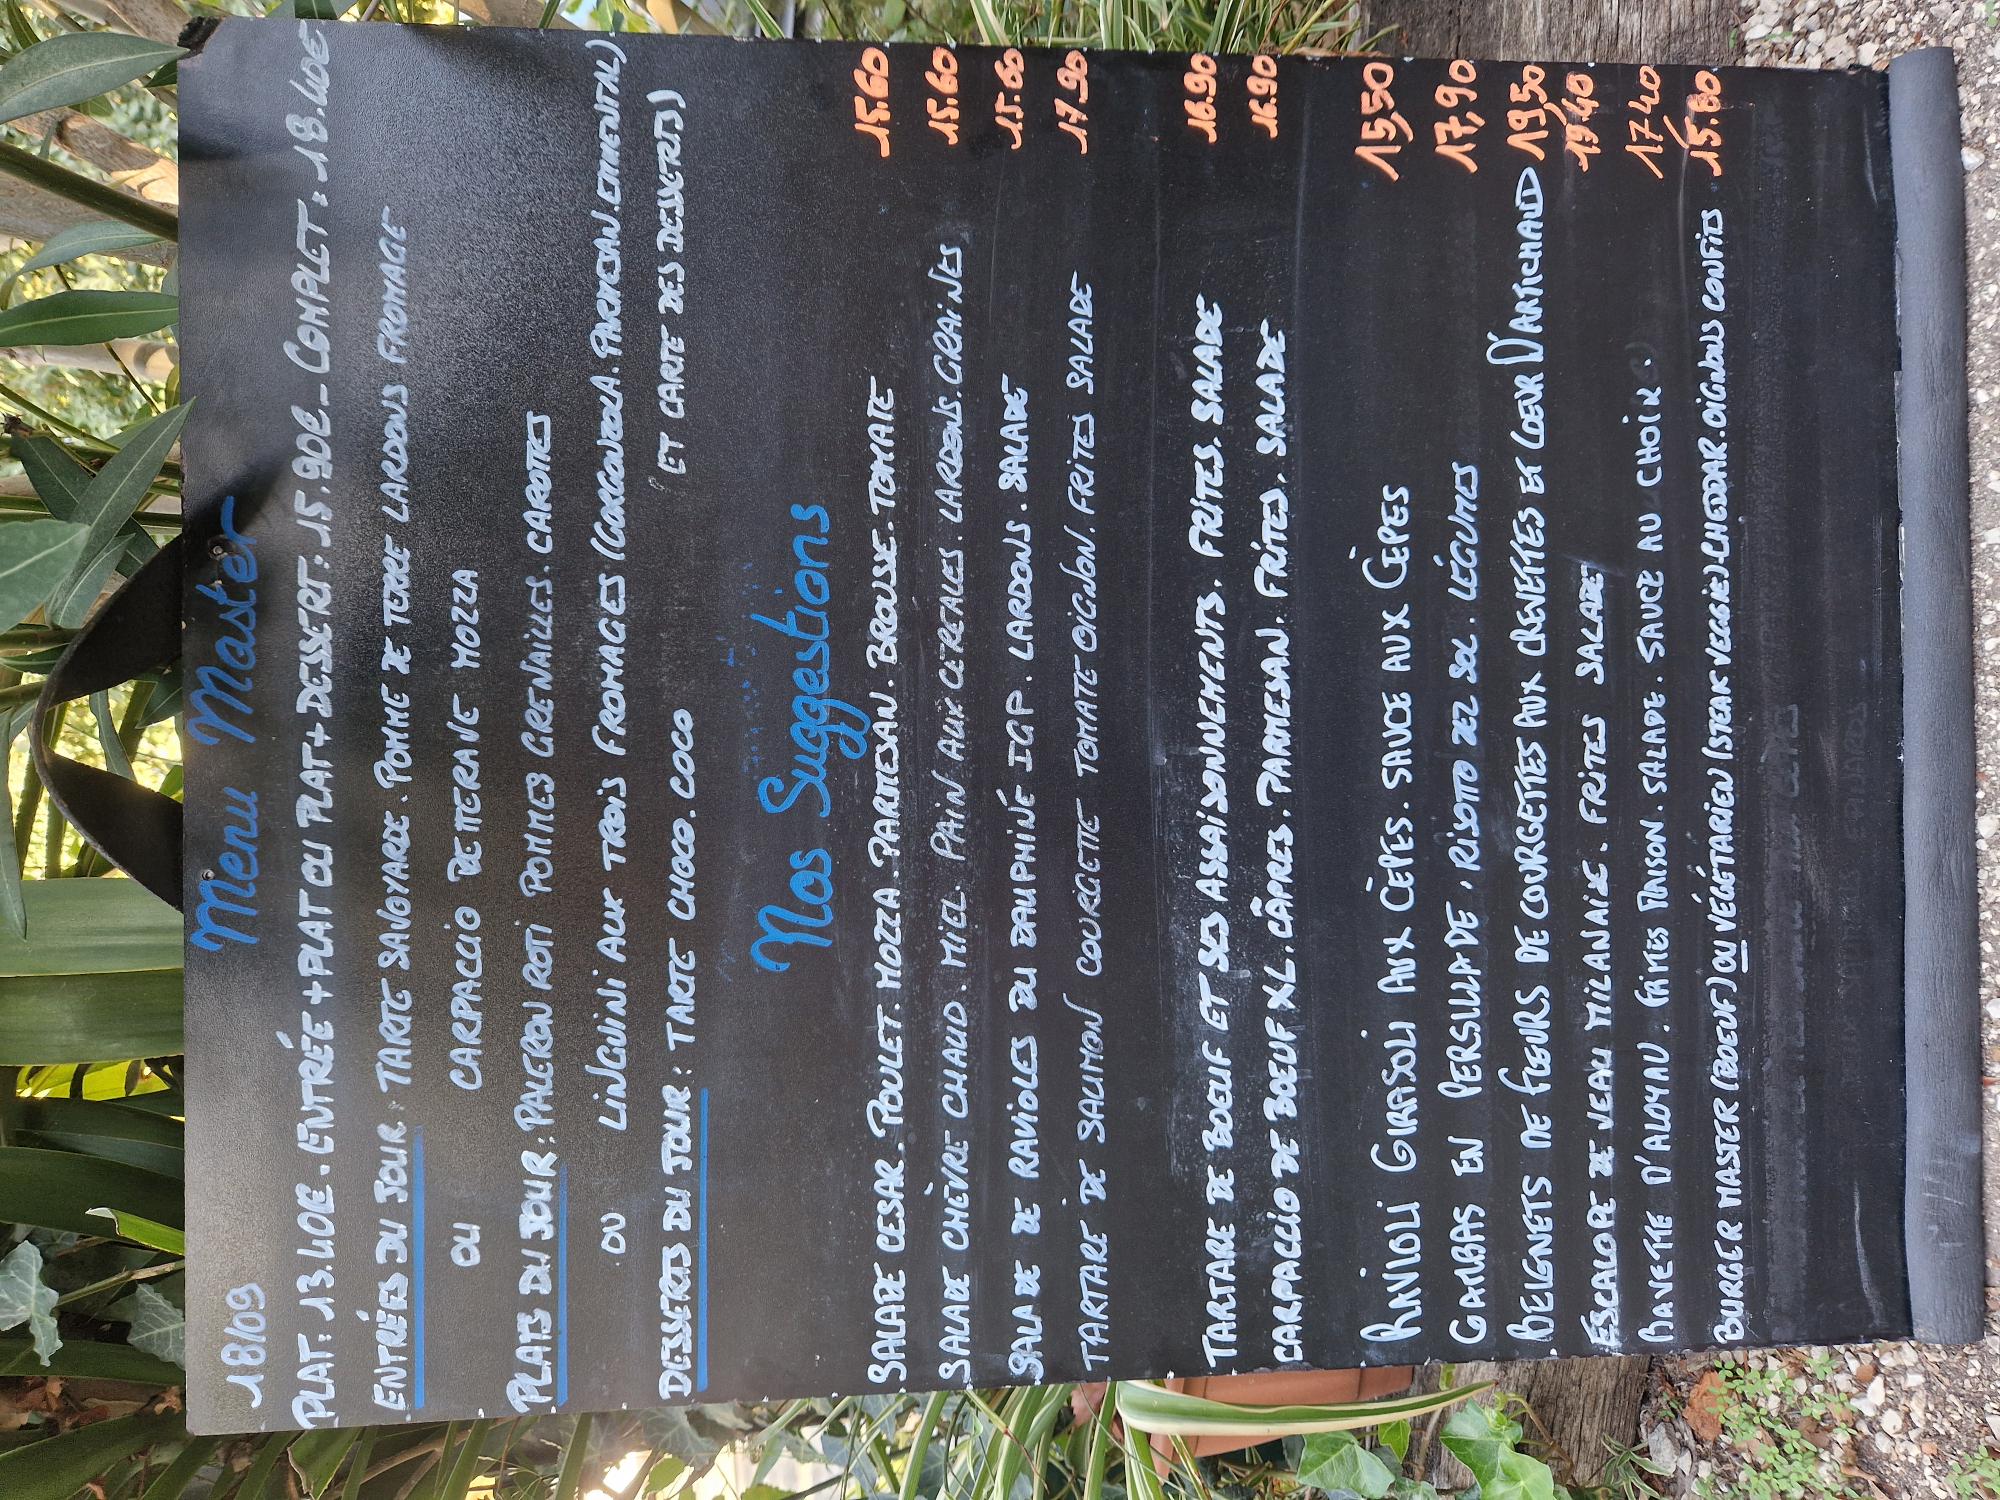 18/09
Menu Master
PLAT: 13.40€. ENTRÉE + PLAT OU PLAT + DESSERT: 15.90€ - COMPLET: 18.40€
ENTRÉES DU JOUR: TARTE SAVOYARDE: POMME DE TERRE LARDONS FROMAGE
OU CARPACCIO BETTERAVE MOZZA
PLATS DU JOUR: PALERON ROTI POMMES GRENAILLES. CAROTTES
OU LINGUINI AUX TROIS FROMAGES (GORGONZOLA. PARMESAN. EMMENTAL)
DESSERTS DU JOUR: TARTE CHOCO. COCO (ET CARTE DES DESSERTS)
Nos Suggestions
SALADE CESAR. POULET. MOZZA. PARMESAN. BROUSSE. TOMATE 15.60
SALADE CHÈVRE CHAUD. MIEL. PAIN AUX CEREALES. LARDONS. GRAINES 15.60
SALADE DE RAVIOLES DU DAUPHINÉ IGP. LARDONS. SALADE 15.60
TARTARE DE SAUMON COURGETTE TOMATE OIGNON. FRITES SALADE 17.90
TARTARE DE BOEUF ET SES ASSAISONNEMENTS. FRITES. SALADE 16.90
CARPACCIO DE BOEUF XL. CÂPRES. PARMESAN. FRITES. SALADE 16.90
RAVIOLI GIRASOLI AUX CÈPES. SAUCE AUX CÈPES 15,50
GAMBAS EN PERSILLADE. RISOTTO DEL SOL. LÉGUMES 17,90
BEIGNETS DE FLEURS DE COURGETTES AUX CREVETTES ET COEUR D'ARTICHAUD 19,50
ESCALOPE DE VEAU MILANAISE. FRITES SALADE 19.40
BAVETTE D'ALOYAU. FRITES MAISON. SALADE. SAUCE AU CHOIX. 17.40
BURGER MASTER (BOEUF) OU VÉGÉTARIEN (STEAK VEGGIE) CHEDDAR. OIGNONS CONFITS 15.80